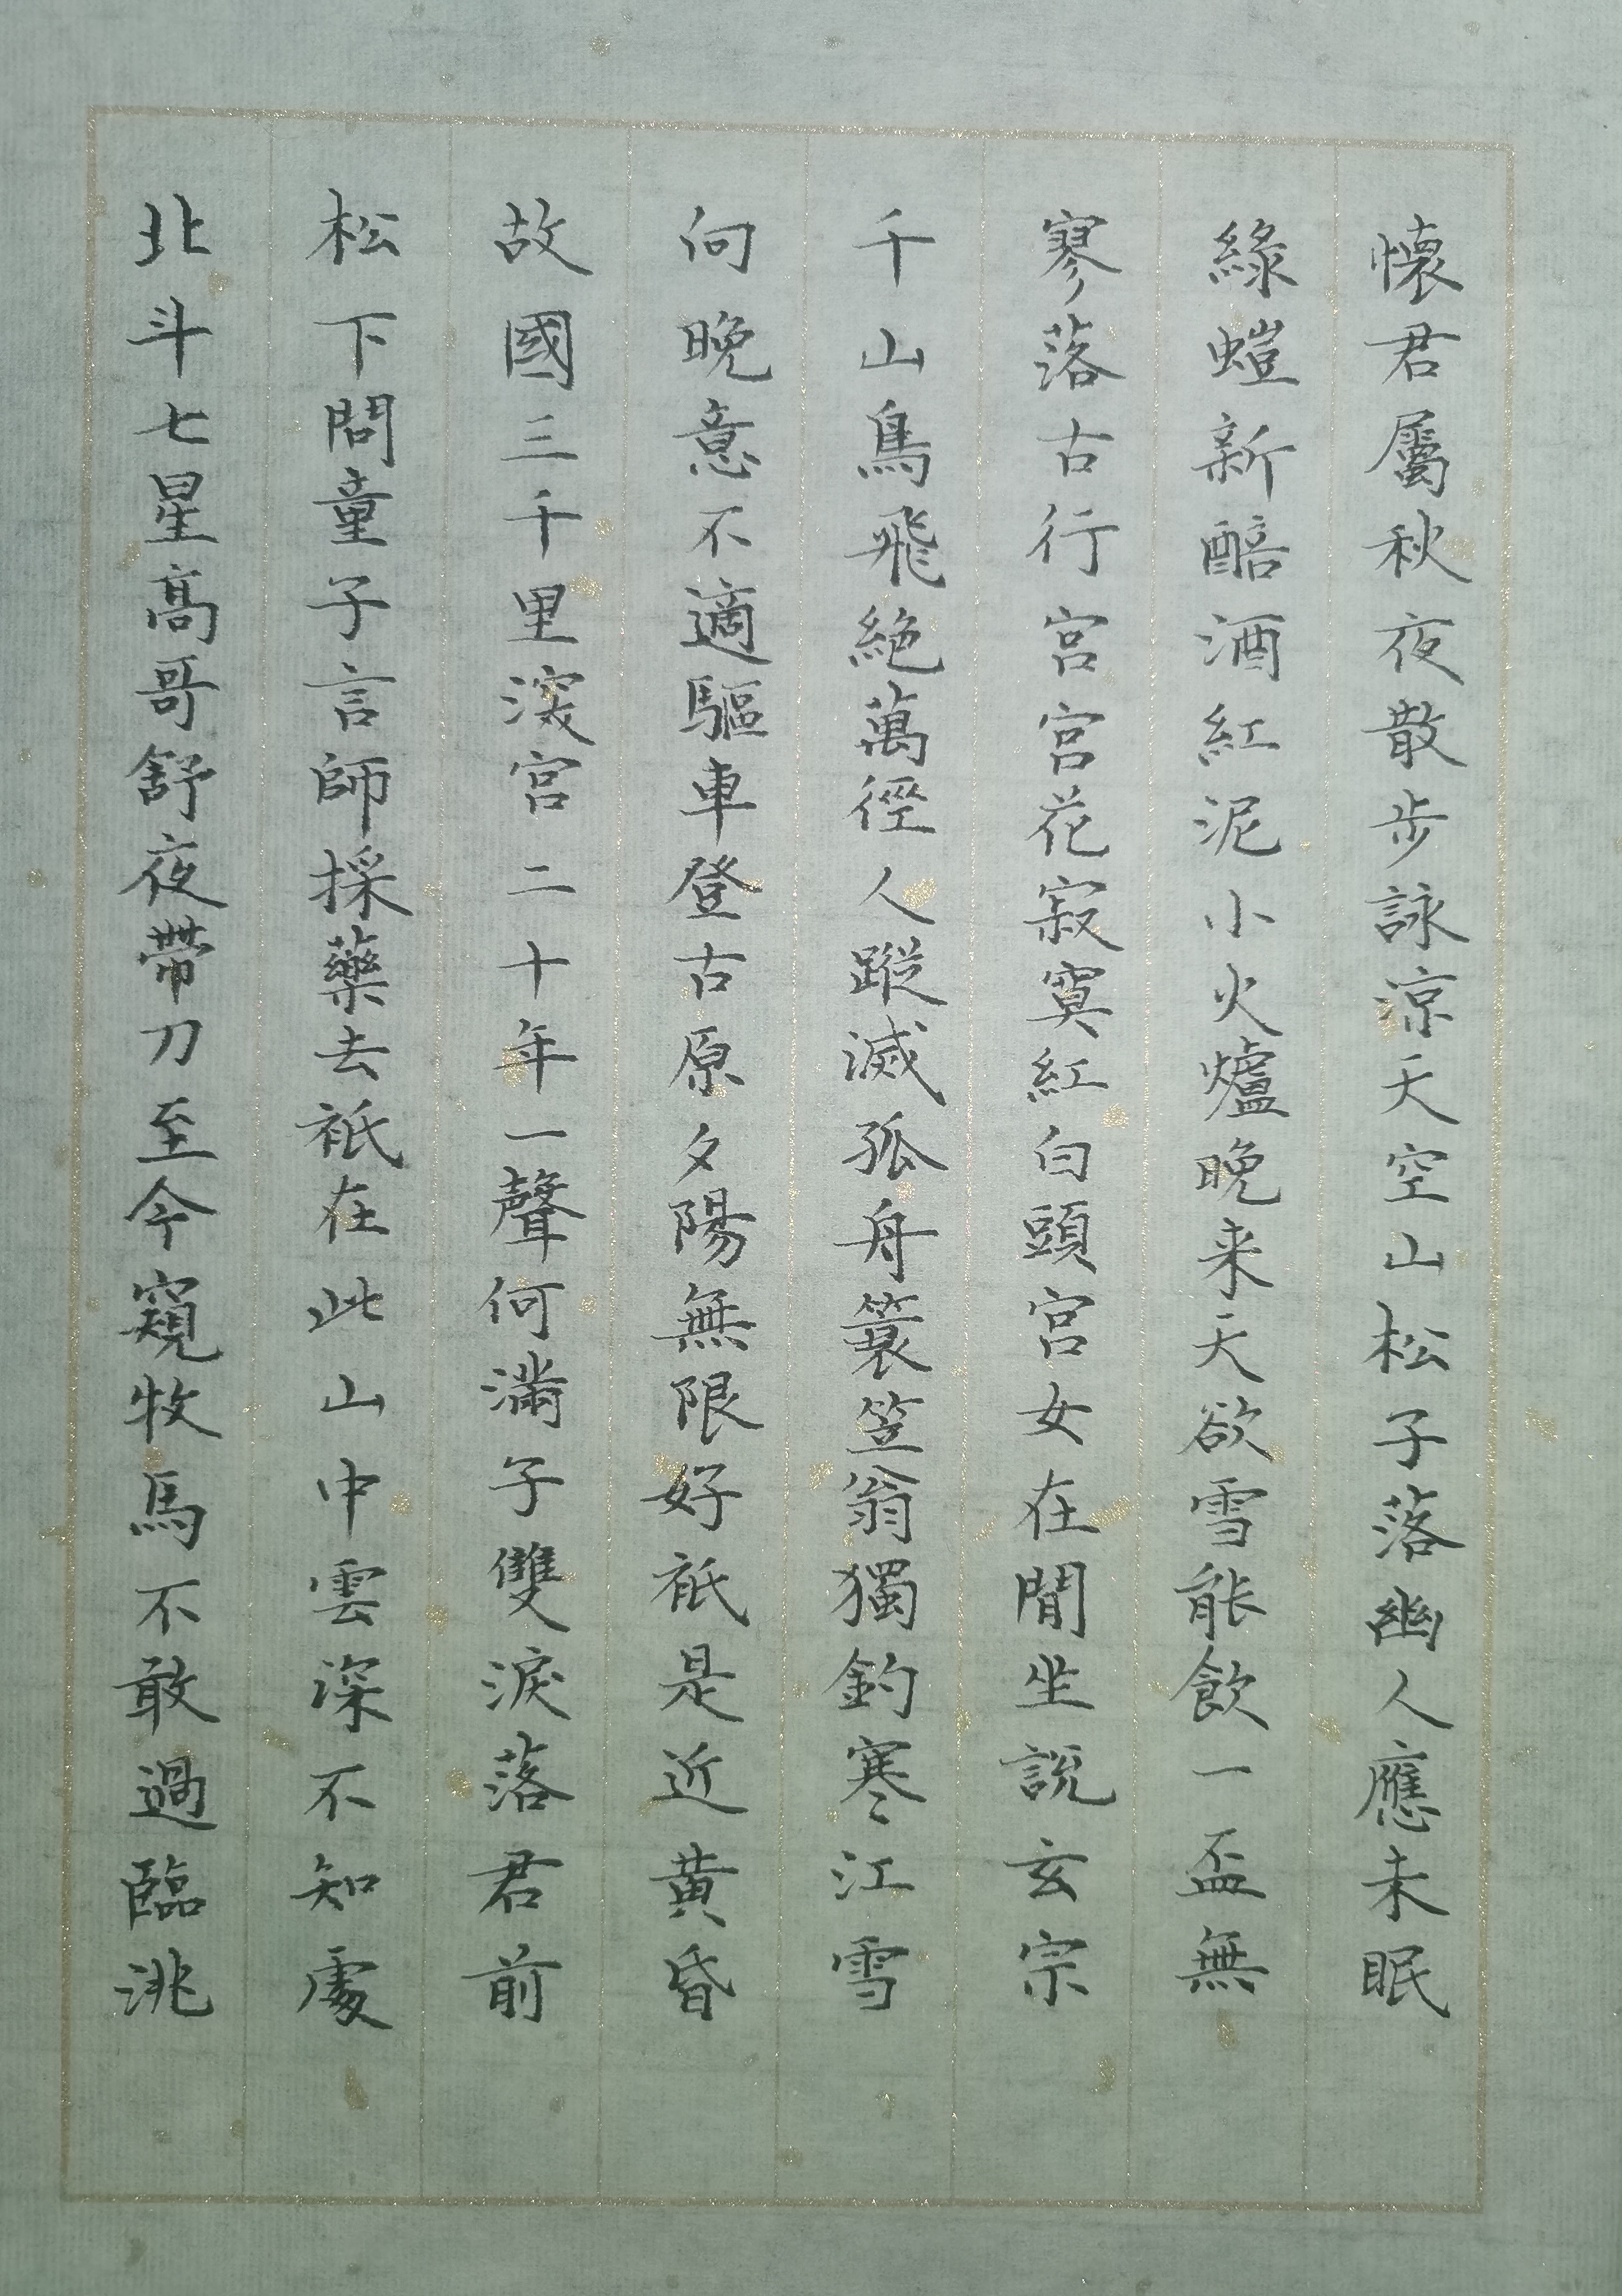 懷君屬秋夜散步詠涼天空山松子落幽人應未眠
綠螘新醅酒紅泥小火爐晚来天欲雪能飲一盃無
寥落古行宮宮花寂寞紅白頭宮女在閒坐說玄宗
千山鳥飛絕萬徑人蹤滅孤舟簑笠翁獨釣寒江雪
向晚意不適驅車登古原夕陽無限好衹是近黄昏
故國三千里深宮二十年一聲何滿子雙淚落君前
松下問童子言師採藥去衹在此山中雲深不知處
北斗七星高哥舒夜帶刀至今窺牧馬不敢過臨洮